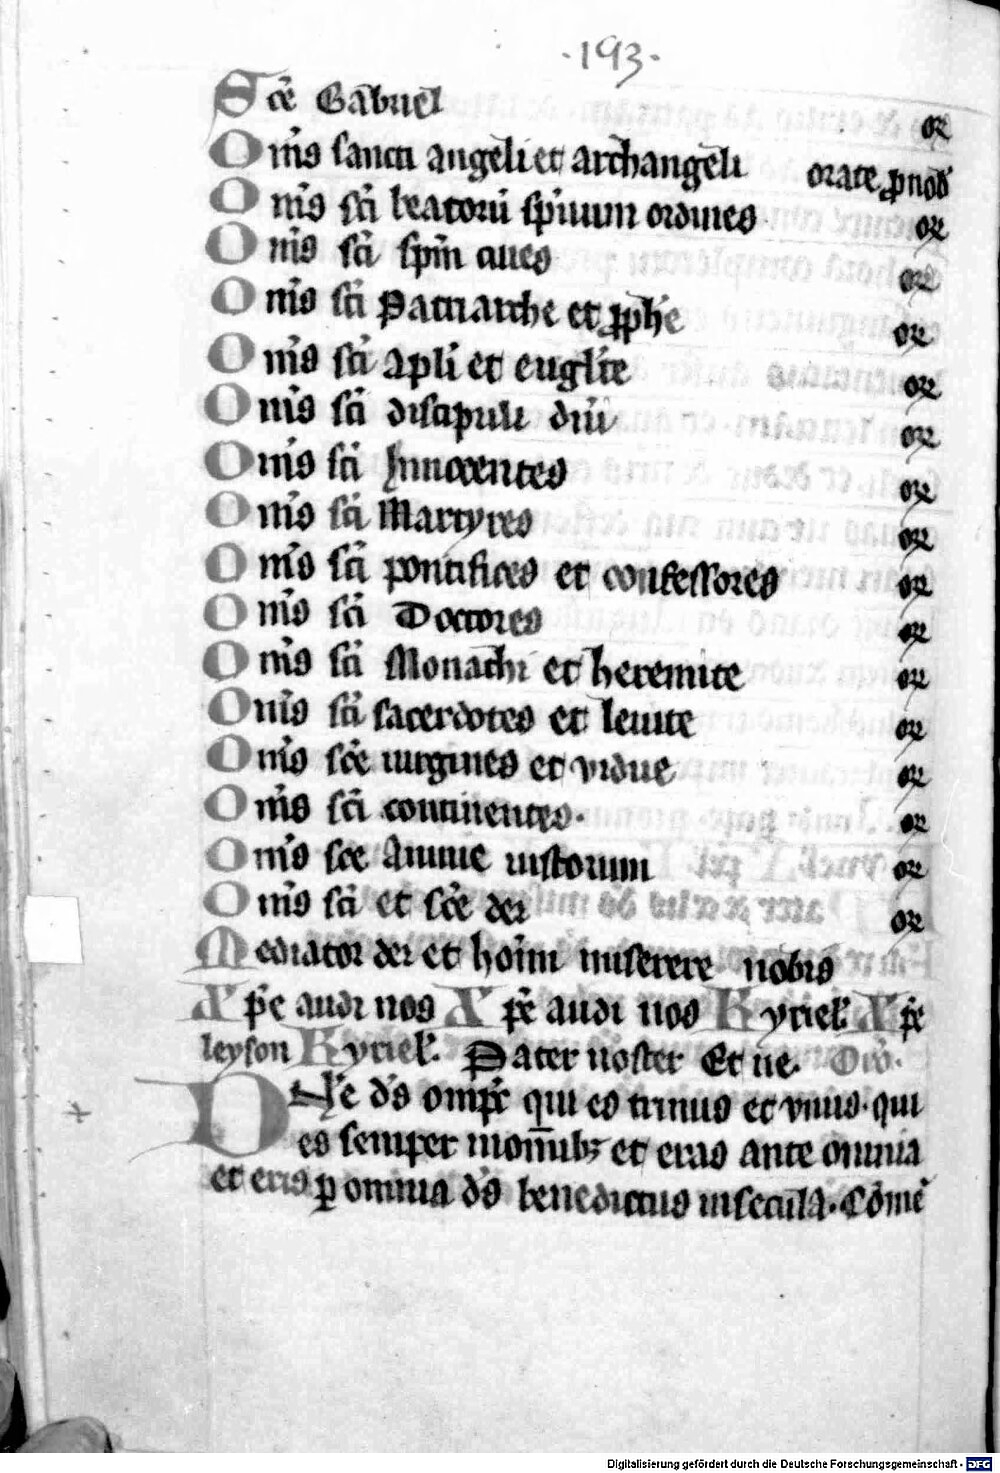 ·193·
Sce Gabriel or
Oms sancti angeli et archangeli orate pro nob
Oms sci beatoru spirituum ordines or
Oms sci
Oms sci Patriarche et prophe or
Oms sci apli et eugliste or
Oms sci discipuli dni or
Oms sci Innocentes or
Oms sci Martyres or
Oms sci pontifices et confessores or
Oms sci Doctores or
Oms sci Monachi et heremite or
Oms sci sacerdotes et leuite or
Oms sce uirgines et vidue or
Oms sci continentes· or
Oms sce anime iustorum or
Oms sci et sce dei or
Mediator dei et hoim miserere nobis
Xpe audi nos Xpe audi nos Kyriel' Xpe
leyson Kyriel'. Pater noster Et ne. Oro.
Dne ds omps qui es trinus et vnus· qui
es semper in omnib; et eras ante omnia
et eris p omnia ds benedictus in secula·
Digitalisierung gefördert durch die Deutsche Forschungsgemeinschaft - DFG